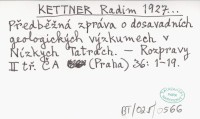 KETTNER Radim 1927...
Předběžná zpráva o dosavadních
geologických výzkumech v
Nízkých Tatrách. — Rozpravy
II tř. ČA (Praha) 36: 1-19.